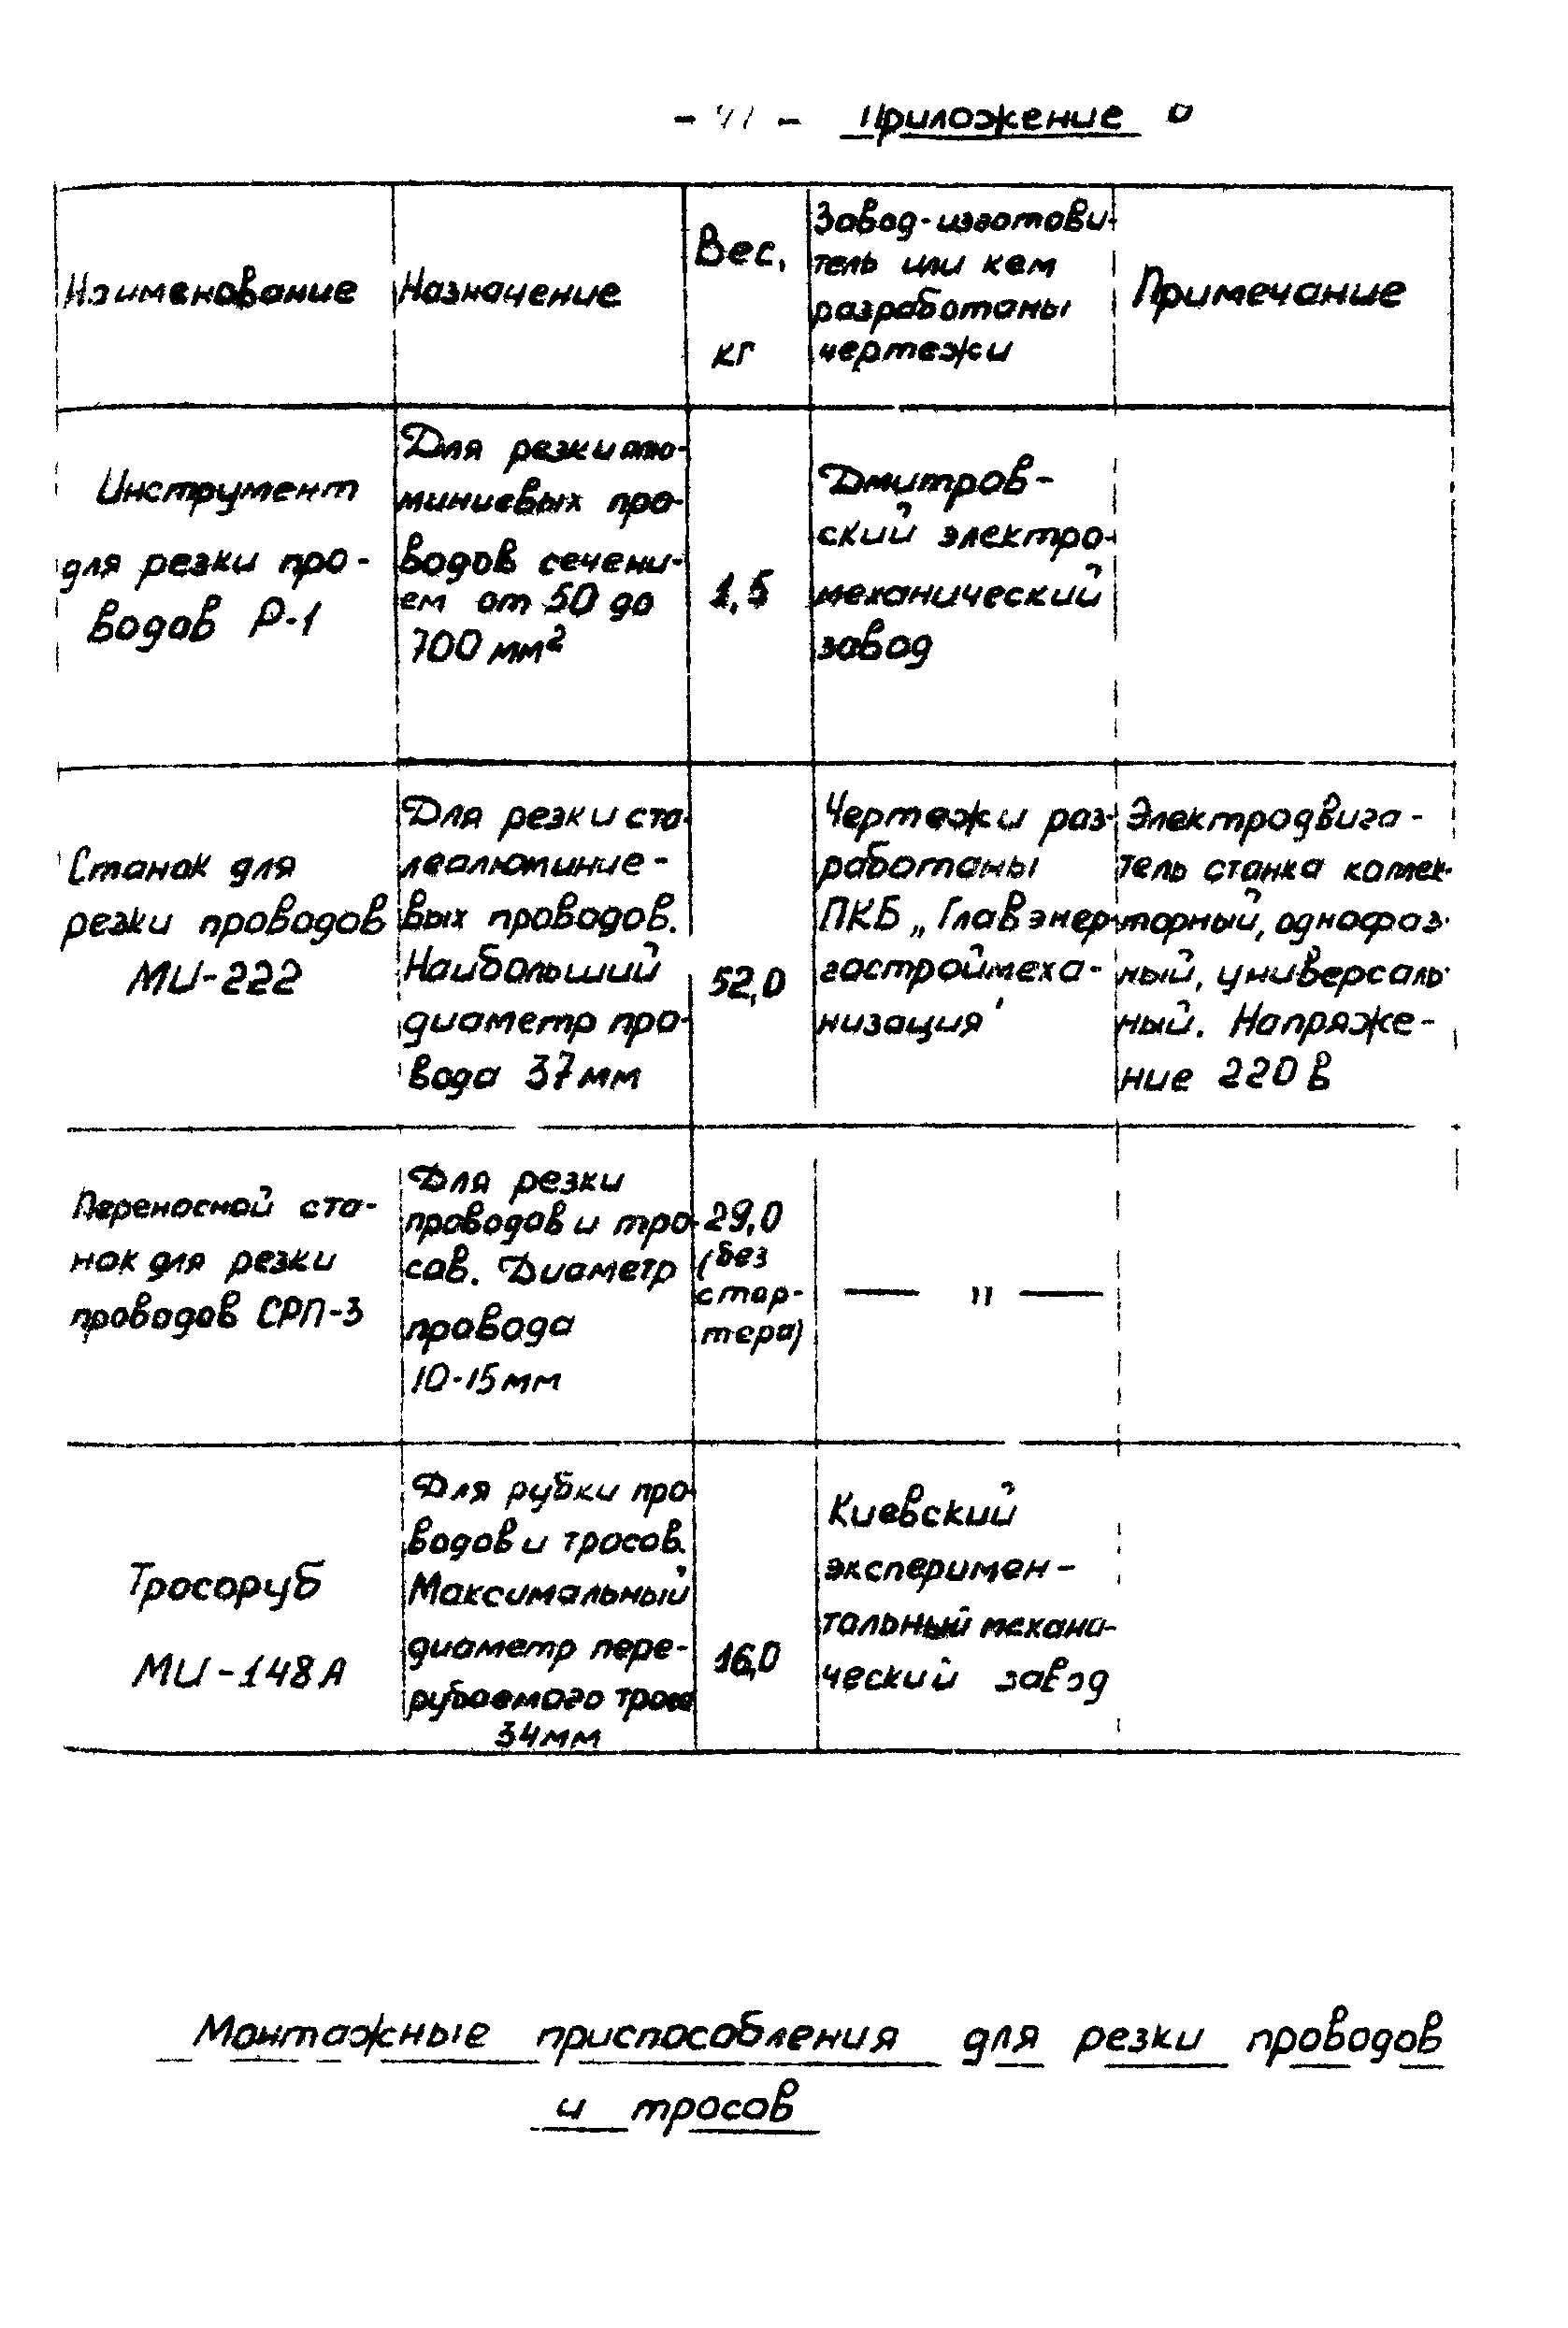 Приложение
Наименование
Назначение
Вес,
кг
Завод-изготови-
тель или кем
разработаны
чертежи
Примечание
Инструмент
для резки про-
водов Р-1
Для резки алю-
миниевых про-
водов сечени-
ем от 50 до
700 мм²
1,5
Дмитров-
ский электро-
механический
завод
Станок для
резки проводов
МИ-222
Для резки ста-
леалюминие-
вых проводов.
Наибольший
диаметр про-
вода 37 мм
52,0
Чертежи раз-
работаны
ПКБ „Главэнер-
гостроймеха-
низация'
Электродвига-
тель станка коллек-
торный, однофаз-
ный, универсаль-
ный. Напряже-
ние 220 в
Переносной ста-
нок для резки
проводов СРП-3
Для резки
проводов и тро-
сов. Диаметр
провода
10-15 мм
29,0
(без
стар-
тера)
— " —
Тросоруб
МИ-148А
Для рубки про-
водов и тросов.
Максимальный
диаметр пере-
рубаемого троса
34 мм
16,0
Киевский
эксперимен-
тальный механи-
ческий завод
Монтажные приспособления для резки проводов
и тросов